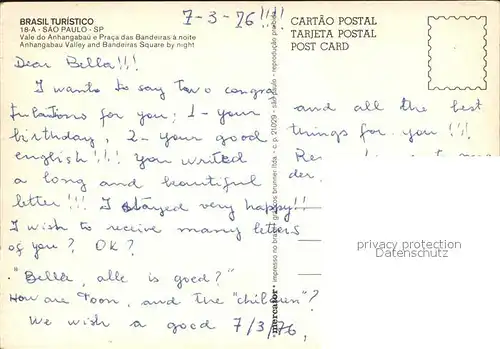 BRASIL TURÍSTICO
18-A - SÃO PAULO - SP
Vale do Anhangabaú e Praça das Bandeiras à noite
Anhangabaú Valley and Bandeiras Square by night
7-3-76!!!!
CARTÃO POSTAL
TARJETA POSTAL
POST CARD
Dear Bella!!!
I wants to say two congra
tulations for you; 1- your
birthday, 2- your good
english!!! You writed
a long and beautiful
letter!!! I stayed very happy!!
I wish to receive many letters
of you? OK?
"Bella, alle is goed?"
How are Toon, and the "children"?
We wish a good 7/3/76,
and all the best
things for you!!!
der.
mercator® impresso no brasil - gráficos brunner ltda. - c. p. 21029 - são paulo - reprodução proibida
privacy protection
Datenschutz